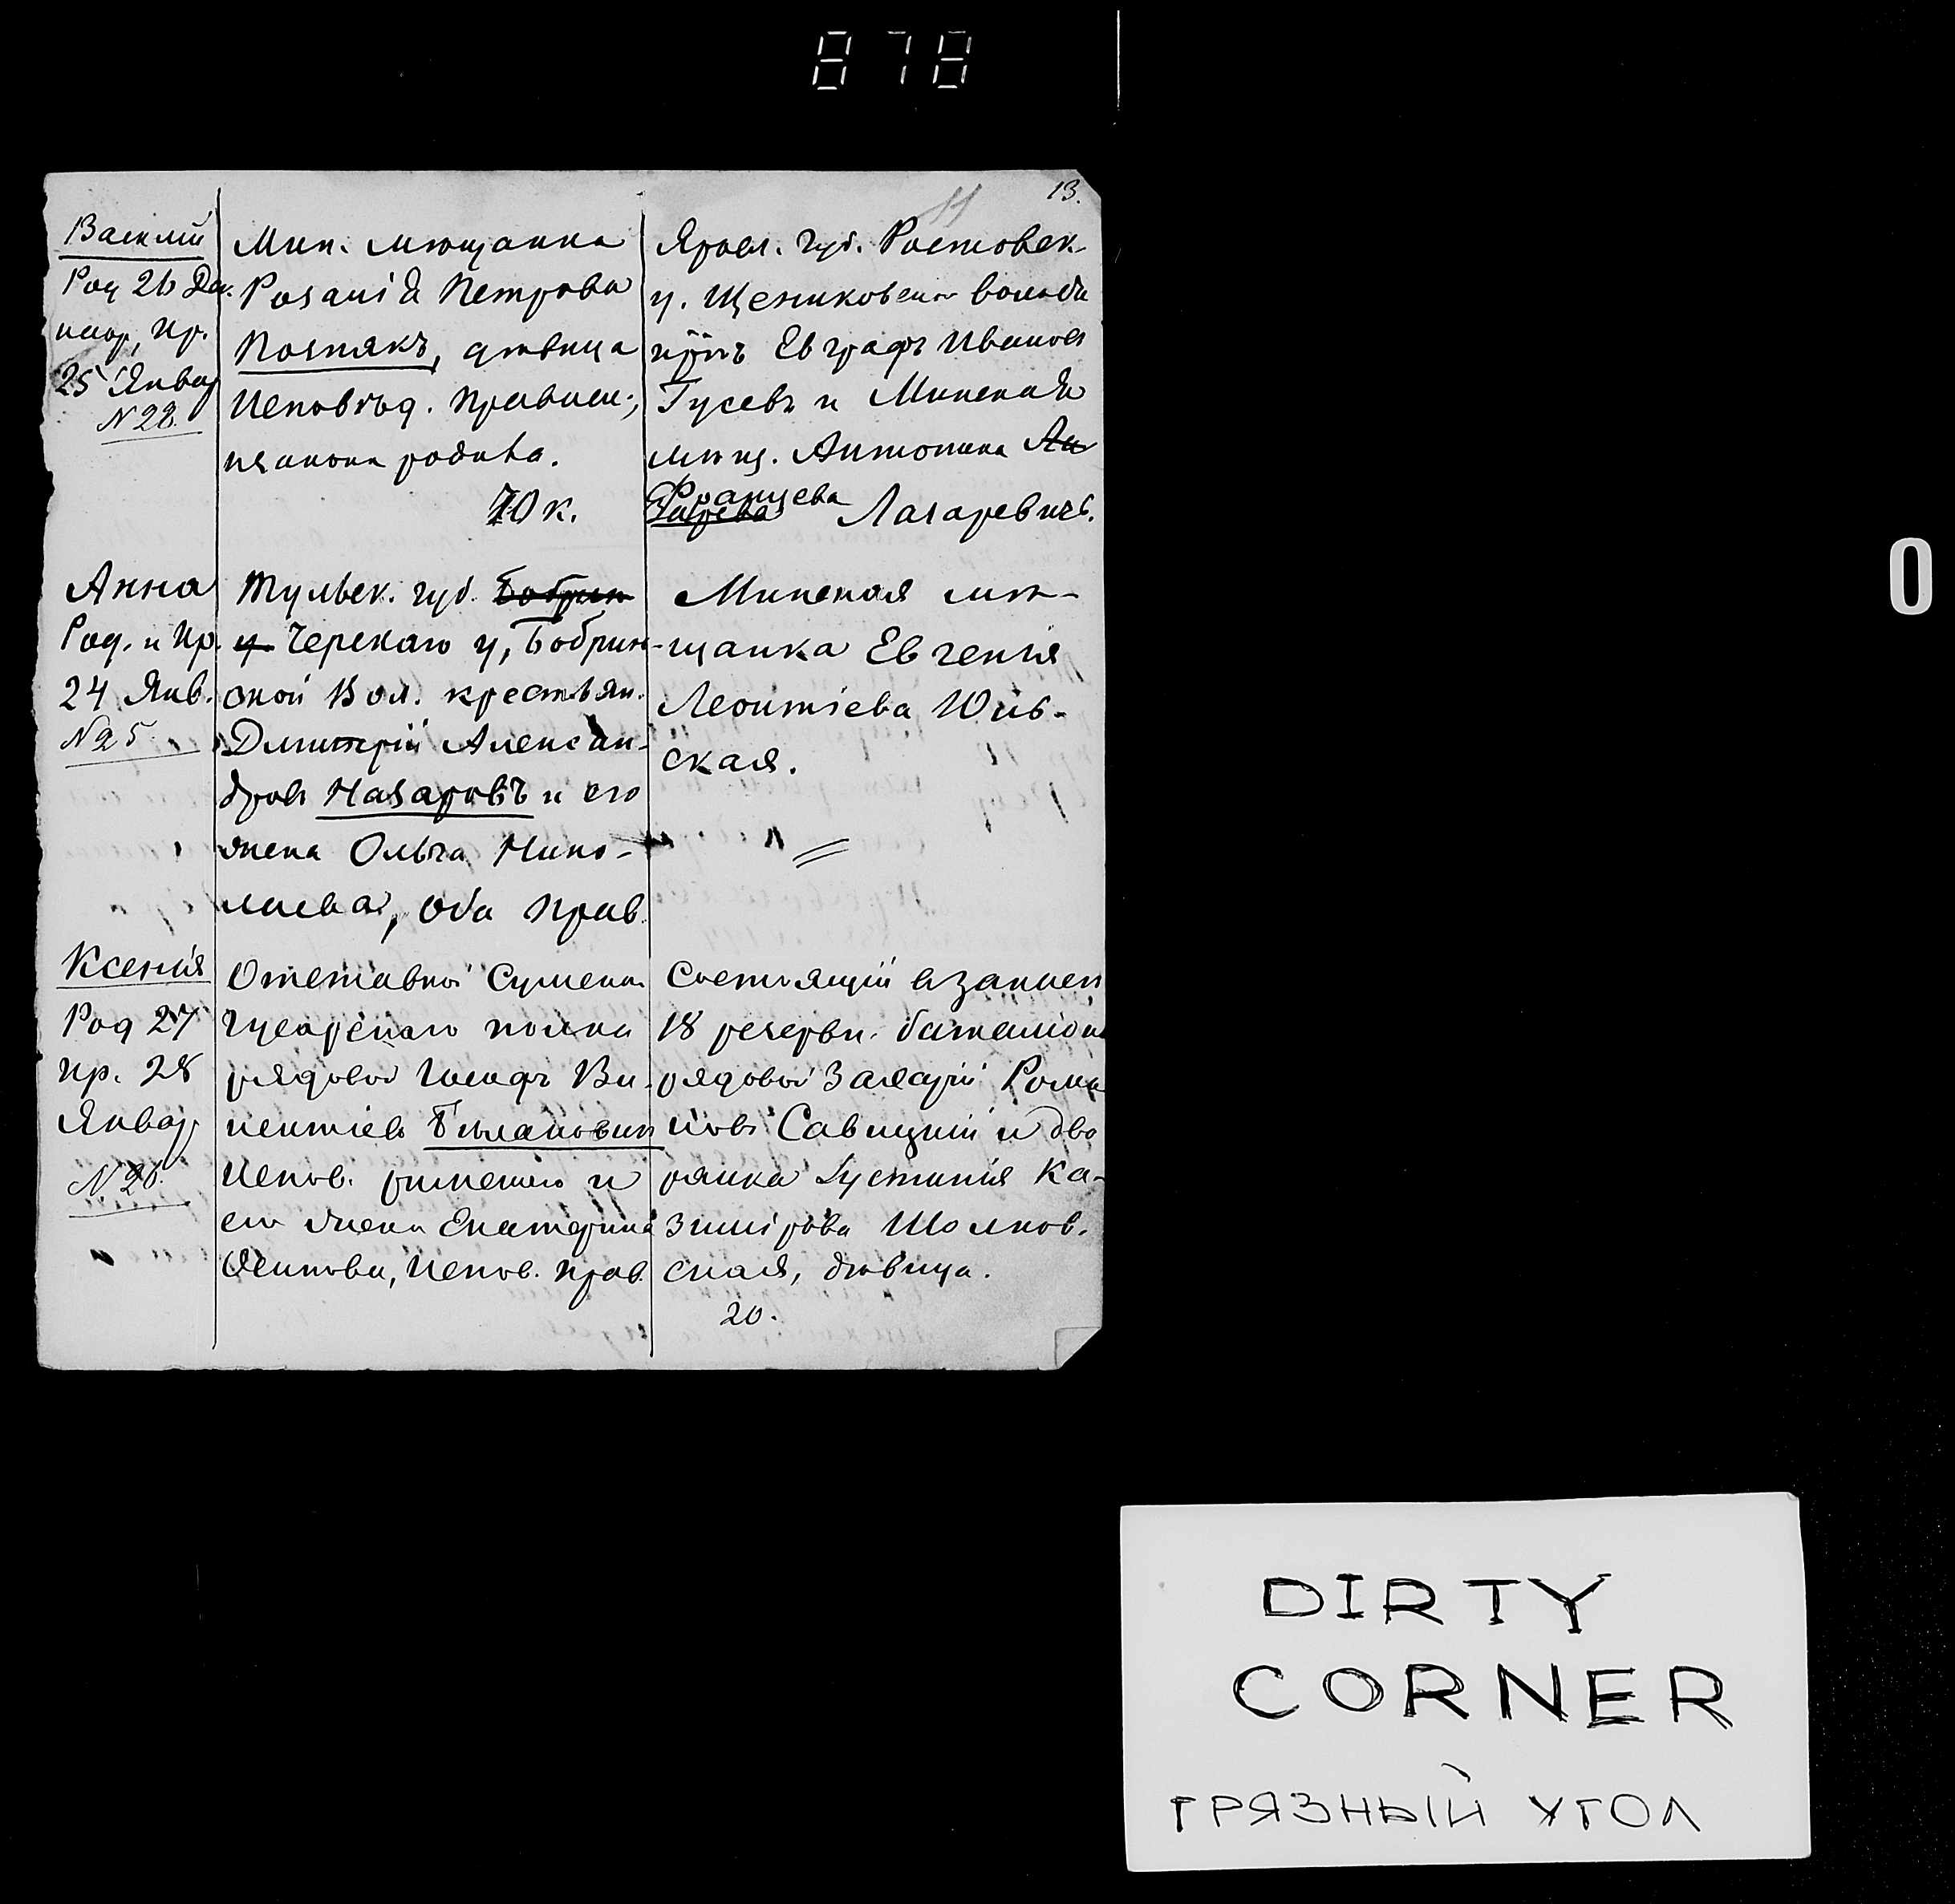 878
13.
11
Василій
Род 26 Дек.
пр.
25 Январ
N 22.
Мин. мѣщанка
Розалія Петрова
Познякъ, дѣвица
Исповѣд. Правосл.,
незаконн родила.
70 к.
Яросл. губ. Ростовск
у. Щениковской волости
крнъ Евграфъ Иванов
Гусевъ и Минская
мѣщ. Антонина Ан
Францева Лазаревичъ.
Анна
Род. и Кр.
24 Янв.
N 25.
Тульск. губ. Бобрин
у. Чернскаго у, Бобрин-
ской Вол. крестьян.
Дмитрій Алексан-
дровъ Назаровъ и его
жена Ольга Нико-
лаева, оба Прав.
Минская мѣ-
щанка Евгенія
Леонтіева
ская.
Ксенія
Род 27
Кр. 28
Январ
N 26.
Отставной Сумска
гусарскаго полка
рядовой Іосифъ Ви-
кентіевъ
Испов. римскаго и
его жена Екатерина
Осипова, Испов. прав.
Состоящій в запасѣ
18 резервн. баталіона
рядовой Рома
новъ Савицкій и дво
рянка Іустинія Ка-
зимірова
ская, дѣвица.
20.
0
DIRTY
CORNER
ГРЯЗНЫЙ УГОЛ